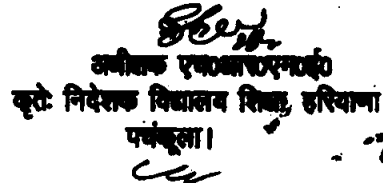 अधीक्षक एच०आर०एम०ई०
कृतेः निदेशक विद्यालय शिक्षा, हरियाणा
पचंकूला।